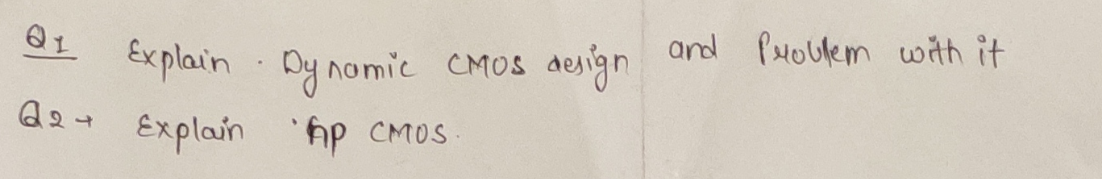 Q1 Explain . Dynamic CMOS design and Problem with it
Q2→ Explain np CMOS.